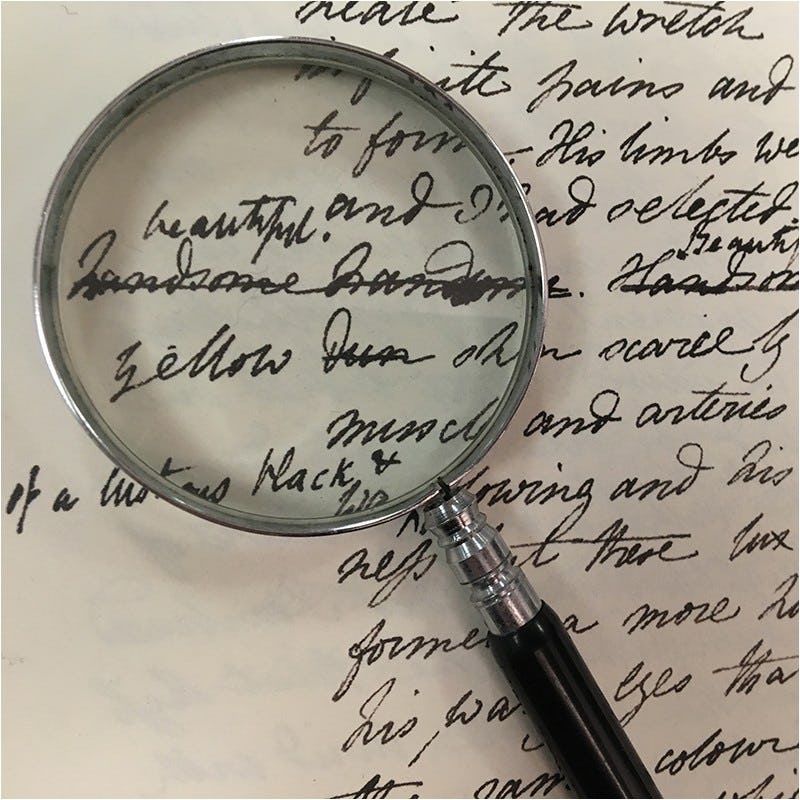 neate the wretch
infinite pains and
to form. His limbs we
and I had selected
beautiful. Beautif
handsome handsome. Handsom
yellow Dun skin scarcely
muscle and arteries
of a lustrous black &
flowing and his
ness these lux
formed a more ho
his eyes tha
colour
the